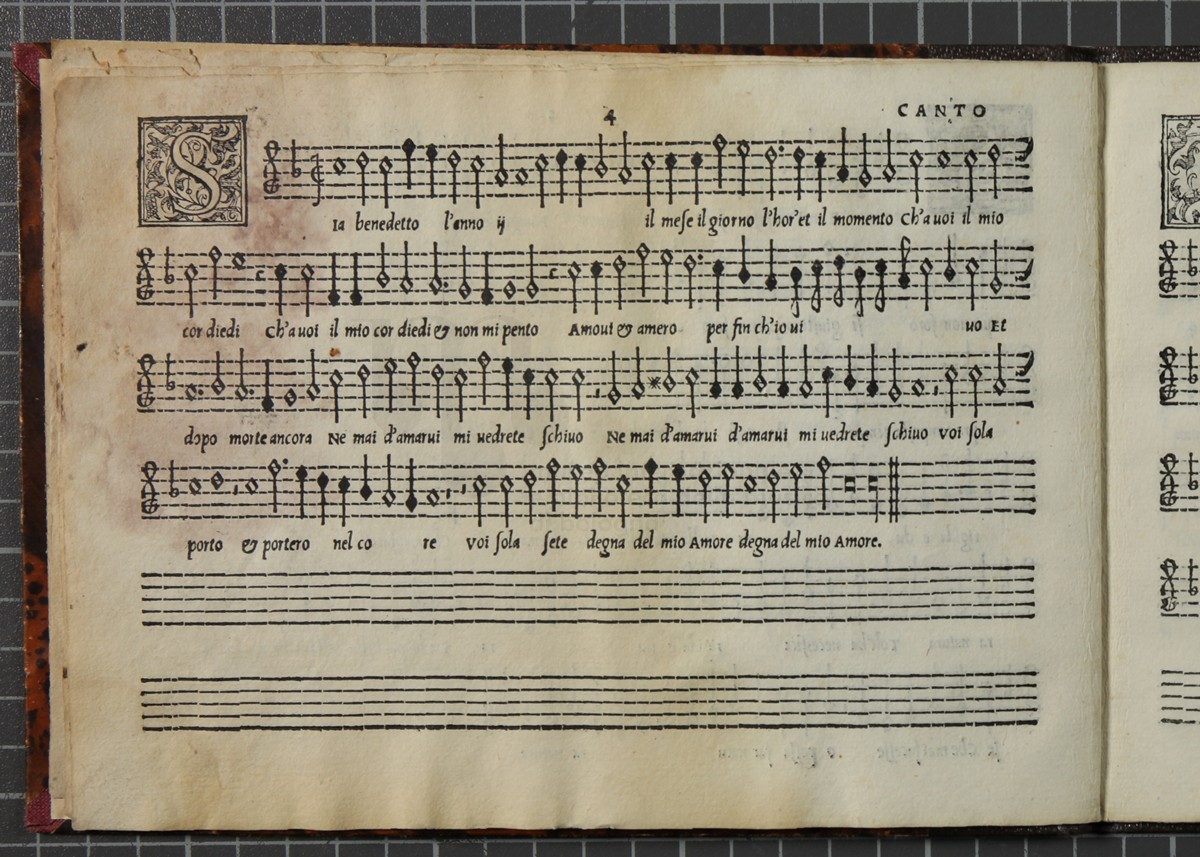 4
CANTO
SIa benedetto l'anno ij il mese il giorno l'hor'et il momento Ch'a uoi il mio
cor diedi Ch'a uoi il mio cor diedi & non mi pento Amoui & amero per fin ch'io ui uo Et
dopo morte ancora Ne mai d'amarui mi uedrete schiuo Ne mai d'amarui d'amarui mi uedrete schiuo voi sola
porto & portero nel co re voi sola sete degna del mio Amore degna del mio Amore.